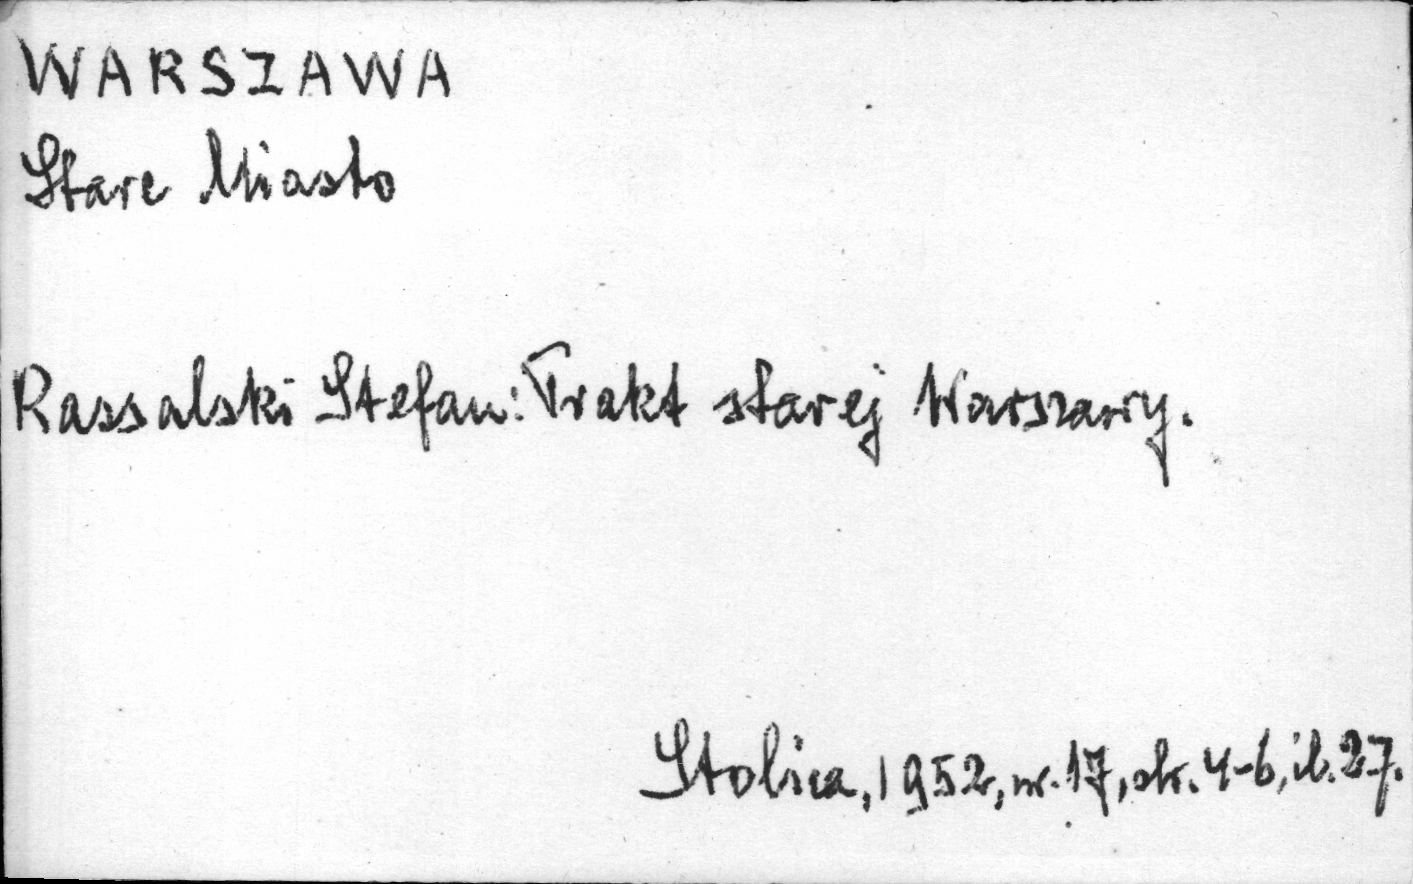 WARSZAWA
Stare Miasto
Rassalski Stefan: Trakt starej Warszawy.
Stolica, 1952, nr. 17, str. 4-6, il. 27.